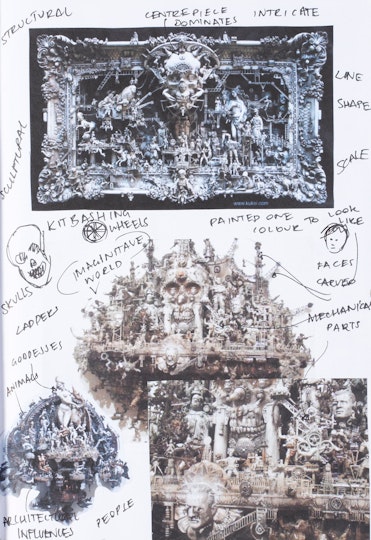 STRUCTURAL
CENTREPIECE
DOMINATES
INTRICATE
LINE
SHAPE
SCALE
SCULPTURAL
www.kuksi.com
KITBASHING
WHEELS
PAINTED ONE
COLOUR TO LOOK
LIKE
IMAGINITAVE
WORLD
FACES
CARVED
SKULLS
LADDERS
MECHANICAL
PARTS
GODDESSES
ANIMALS
ARCHITECTURAL
INFLUENCES
PEOPLE